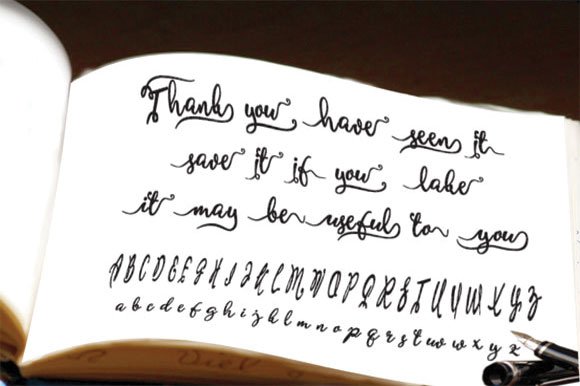 Thank you have seen it
save it if you lake
it may be useful to you
A B C D E F G H I J K L M N O P Q R S T U V W X Y Z
a b c d e f g h i j k l m n o p q r s t u v w x y z